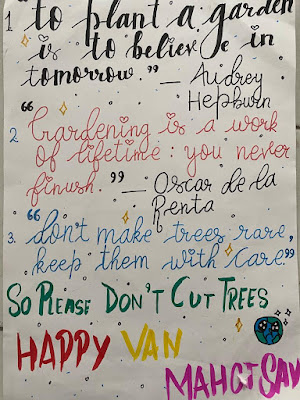 1 "to plant a garden
is to believe in
tomorrow." — Audrey
Hepburn
"
2 Gardening is a work
of lifetime: you never
finish." — Oscar de la
Renta
"
3. don't make trees rare,
keep them with care."
SO PLEASE DON'T CUT TREES
HAPPY VAN
MAHOTSAV